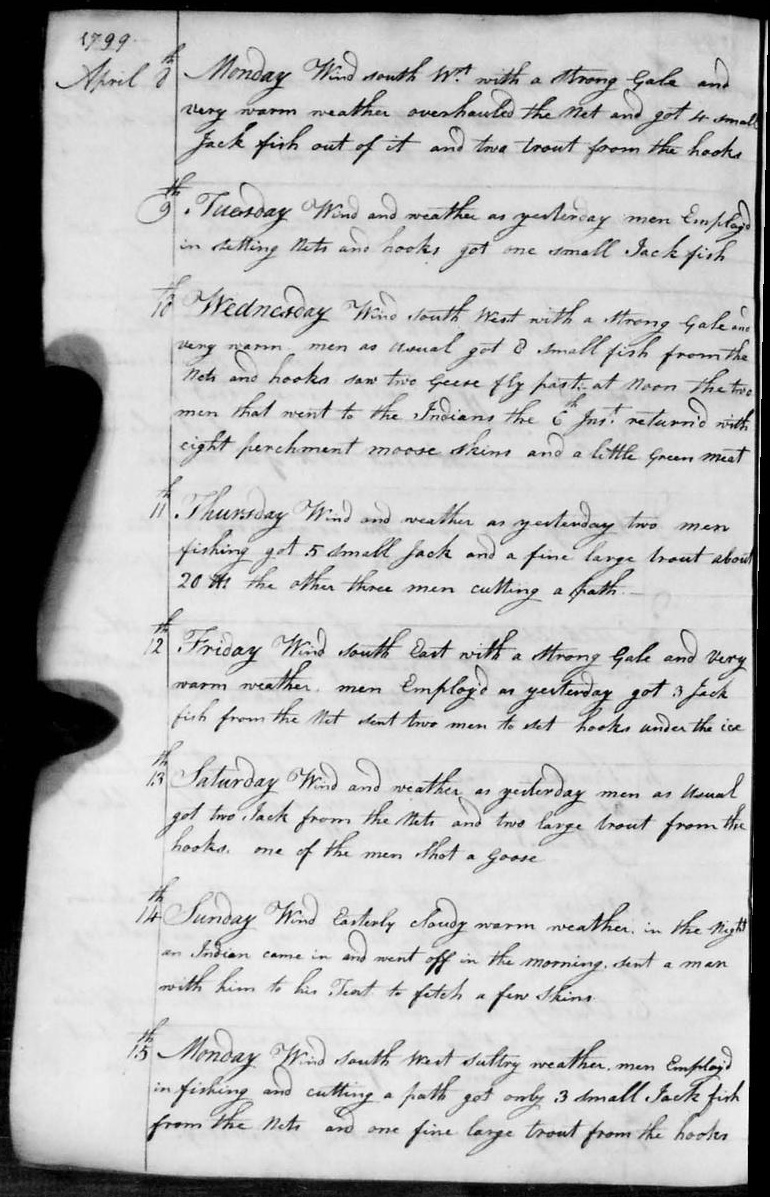 1799
April 8th Monday Wind south Wt. with a strong Gale and
very warm weather overhauled the Net and got 4 small
Jack fish out of it and two trout from the hooks
9th Tuesday Wind and weather as yesterday men Employ'd
in setting Nets and hooks got one small Jack fish
10th Wednesday Wind south West with a strong Gale and
very warm men as usual got 8 small fish from the
Nets and hooks saw two Geese fly past. at Noon the two
men that went to the Indians the 6th Inst. return'd with
eight perchment moose skins and a little Green meat
11th Thursday Wind and weather as yesterday two men
fishing got 5 small Jack and a fine large trout about
20 lbs the other three men cutting a path
12th Friday Wind south East with a strong Gale and very
warm weather. men Employ'd as yesterday got 3 Jack
fish from the Net sent two men to set hooks under the ice
13th Saturday Wind and weather as yesterday men as usual
got two Jack from the Nets and two large trout from the
hooks. one of the men shot a Goose
14th Sunday Wind Easterly cloudy warm weather. in the Night
an Indian came in and went off in the morning. sent a man
with him to his Tent to fetch a few skins
15th Monday Wind south West sultry weather. men Employ'd
in fishing and cutting a path got only 3 small Jack fish
from the Nets and one fine large trout from the hooks